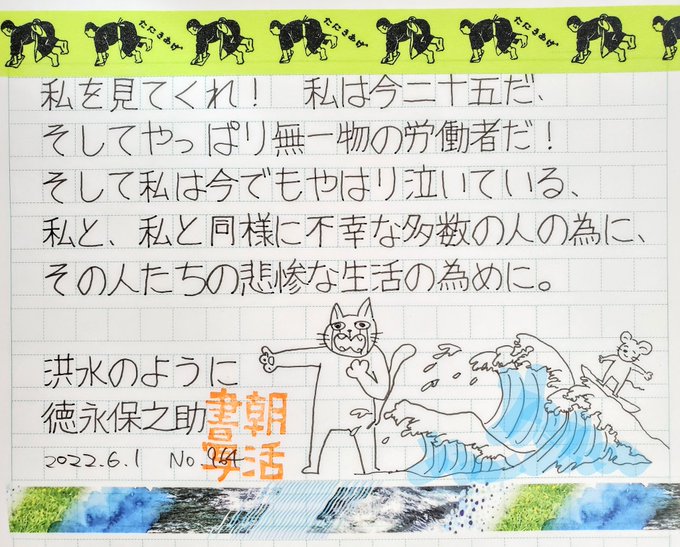 たたきあげ
たたきあげ
たたきあげ
私を見てくれ! 私は今二十五だ、
そしてやっぱり無一物の労働者だ!
そして私は今でもやはり泣いている、
私と、私と同様に不幸な多数の人の為に、
その人たちの悲惨な生活の為めに。
洪水のように
徳永保之助
2022.6.1 No.964
朝活
書写